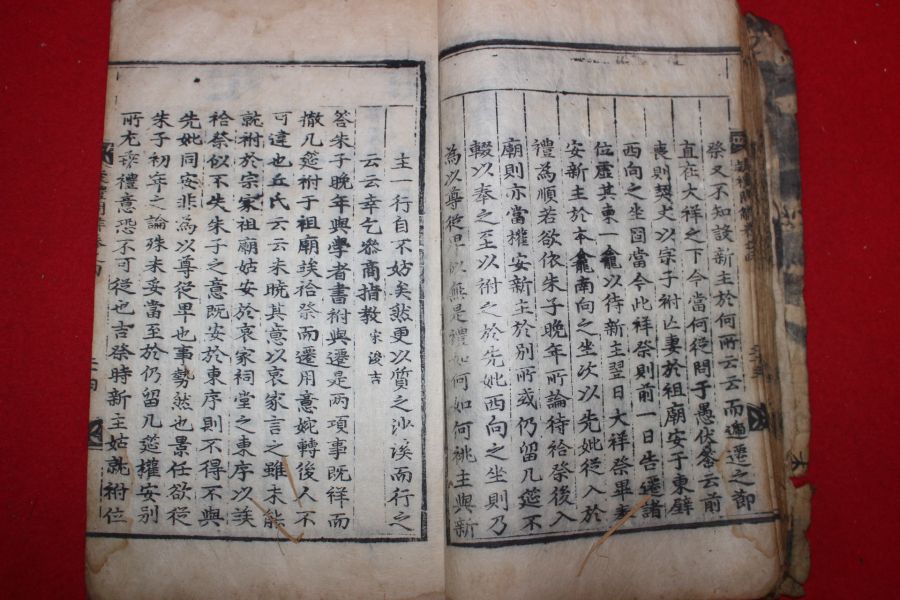 祭又不知設新主於何所云云而遞遷之節
直在大祥之下今當何從問于愚伏答云前
喪則契丈以宗子祔亡妻於祖廟安于東壁
西向之坐圖當今此祥祭則前一日告遷諸
位虛其東一龕以待新主翌日大祥祭畢奉
安新主於本龕南向之坐次以先妣從入於
禮為順若欲依朱子晚年所論待祫祭後入
廟則亦當權安新主於別所或仍留几筵不
輟以奉之至以祔之於先妣西向之坐則乃
為以尊從卑以無是禮如何如何祧主與新
主一行自不妨矣然更以質之沙溪而行之
云云幸乞參商指教 宋浚吉
答朱子晚年與學者書祔與遷是兩項事既祥而
撤几筵祔于祖廟俟祫祭而遷用意婉轉後人不
可違也丘氏云云未曉其意以哀家言之雖未能
就祔於宗家祖廟姑安於哀家祠堂之東序以俟
祫祭似不失朱子之意既安於東序則不得不與
先妣同安非為以尊從卑也事勢然也景任欲從
朱子初年之論殊未妥當至於仍留几筵權安別
所尤乖禮意恐不可從也吉祭時新主姑就祔位